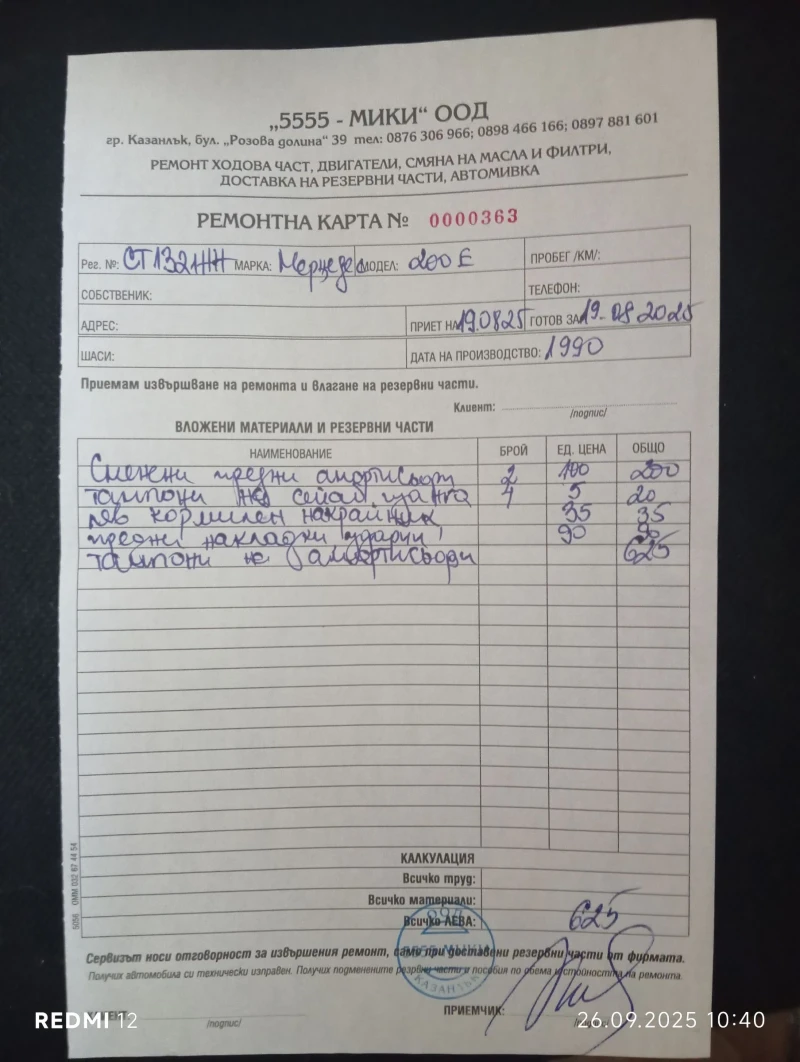 „5555 - МИКИ“ ООД
гр. Казанлък, бул. „Розова долина“ 39 тел: 0876 306 966; 0898 466 166; 0897 881 601
РЕМОНТ ХОДОВА ЧАСТ, ДВИГАТЕЛИ, СМЯНА НА МАСЛА И ФИЛТРИ,
ДОСТАВКА НА РЕЗЕРВНИ ЧАСТИ, АВТОМИВКА
РЕМОНТНА КАРТА № 0000363
Рег. №: СТ1321НН МАРКА: Мерцедес МОДЕЛ: 200 Е ПРОБЕГ /КМ/:
СОБСТВЕНИК: ТЕЛЕФОН:
АДРЕС: ПРИЕТ НА 19.08.25 ГОТОВ ЗА 19.08.2025
ШАСИ: ДАТА НА ПРОИЗВОДСТВО: 1990
Приемам извършване на ремонта и влагане на резервни части.
Клиент:
/подпис/
ВЛОЖЕНИ МАТЕРИАЛИ И РЕЗЕРВНИ ЧАСТИ
НАИМЕНОВАНИЕ БРОЙ ЕД. ЦЕНА ОБЩО
Сменени предни амортисьори 2 100 200
тампони на щанга 4 5 20
ляв кормилен накрайник 35 35
предни накладки 90 90
тампони на амортисьори 625
КАЛКУЛАЦИЯ
Всичко труд:
Всичко материали:
Всичко ЛЕВА: 625
Сервизът носи отговорност за извършения ремонт, само при доставени резервни части от фирмата.
Получих автомобила си технически изправен. Получих подменените резервни части и пособия по обема и стойността на ремонта.
ПРИЕМЧИК:
/подпис/
5056 ОММ 032 67 44 54
5555 МИКИ
КАЗАНЛЪК
REDMI 12
26.09.2025 10:40